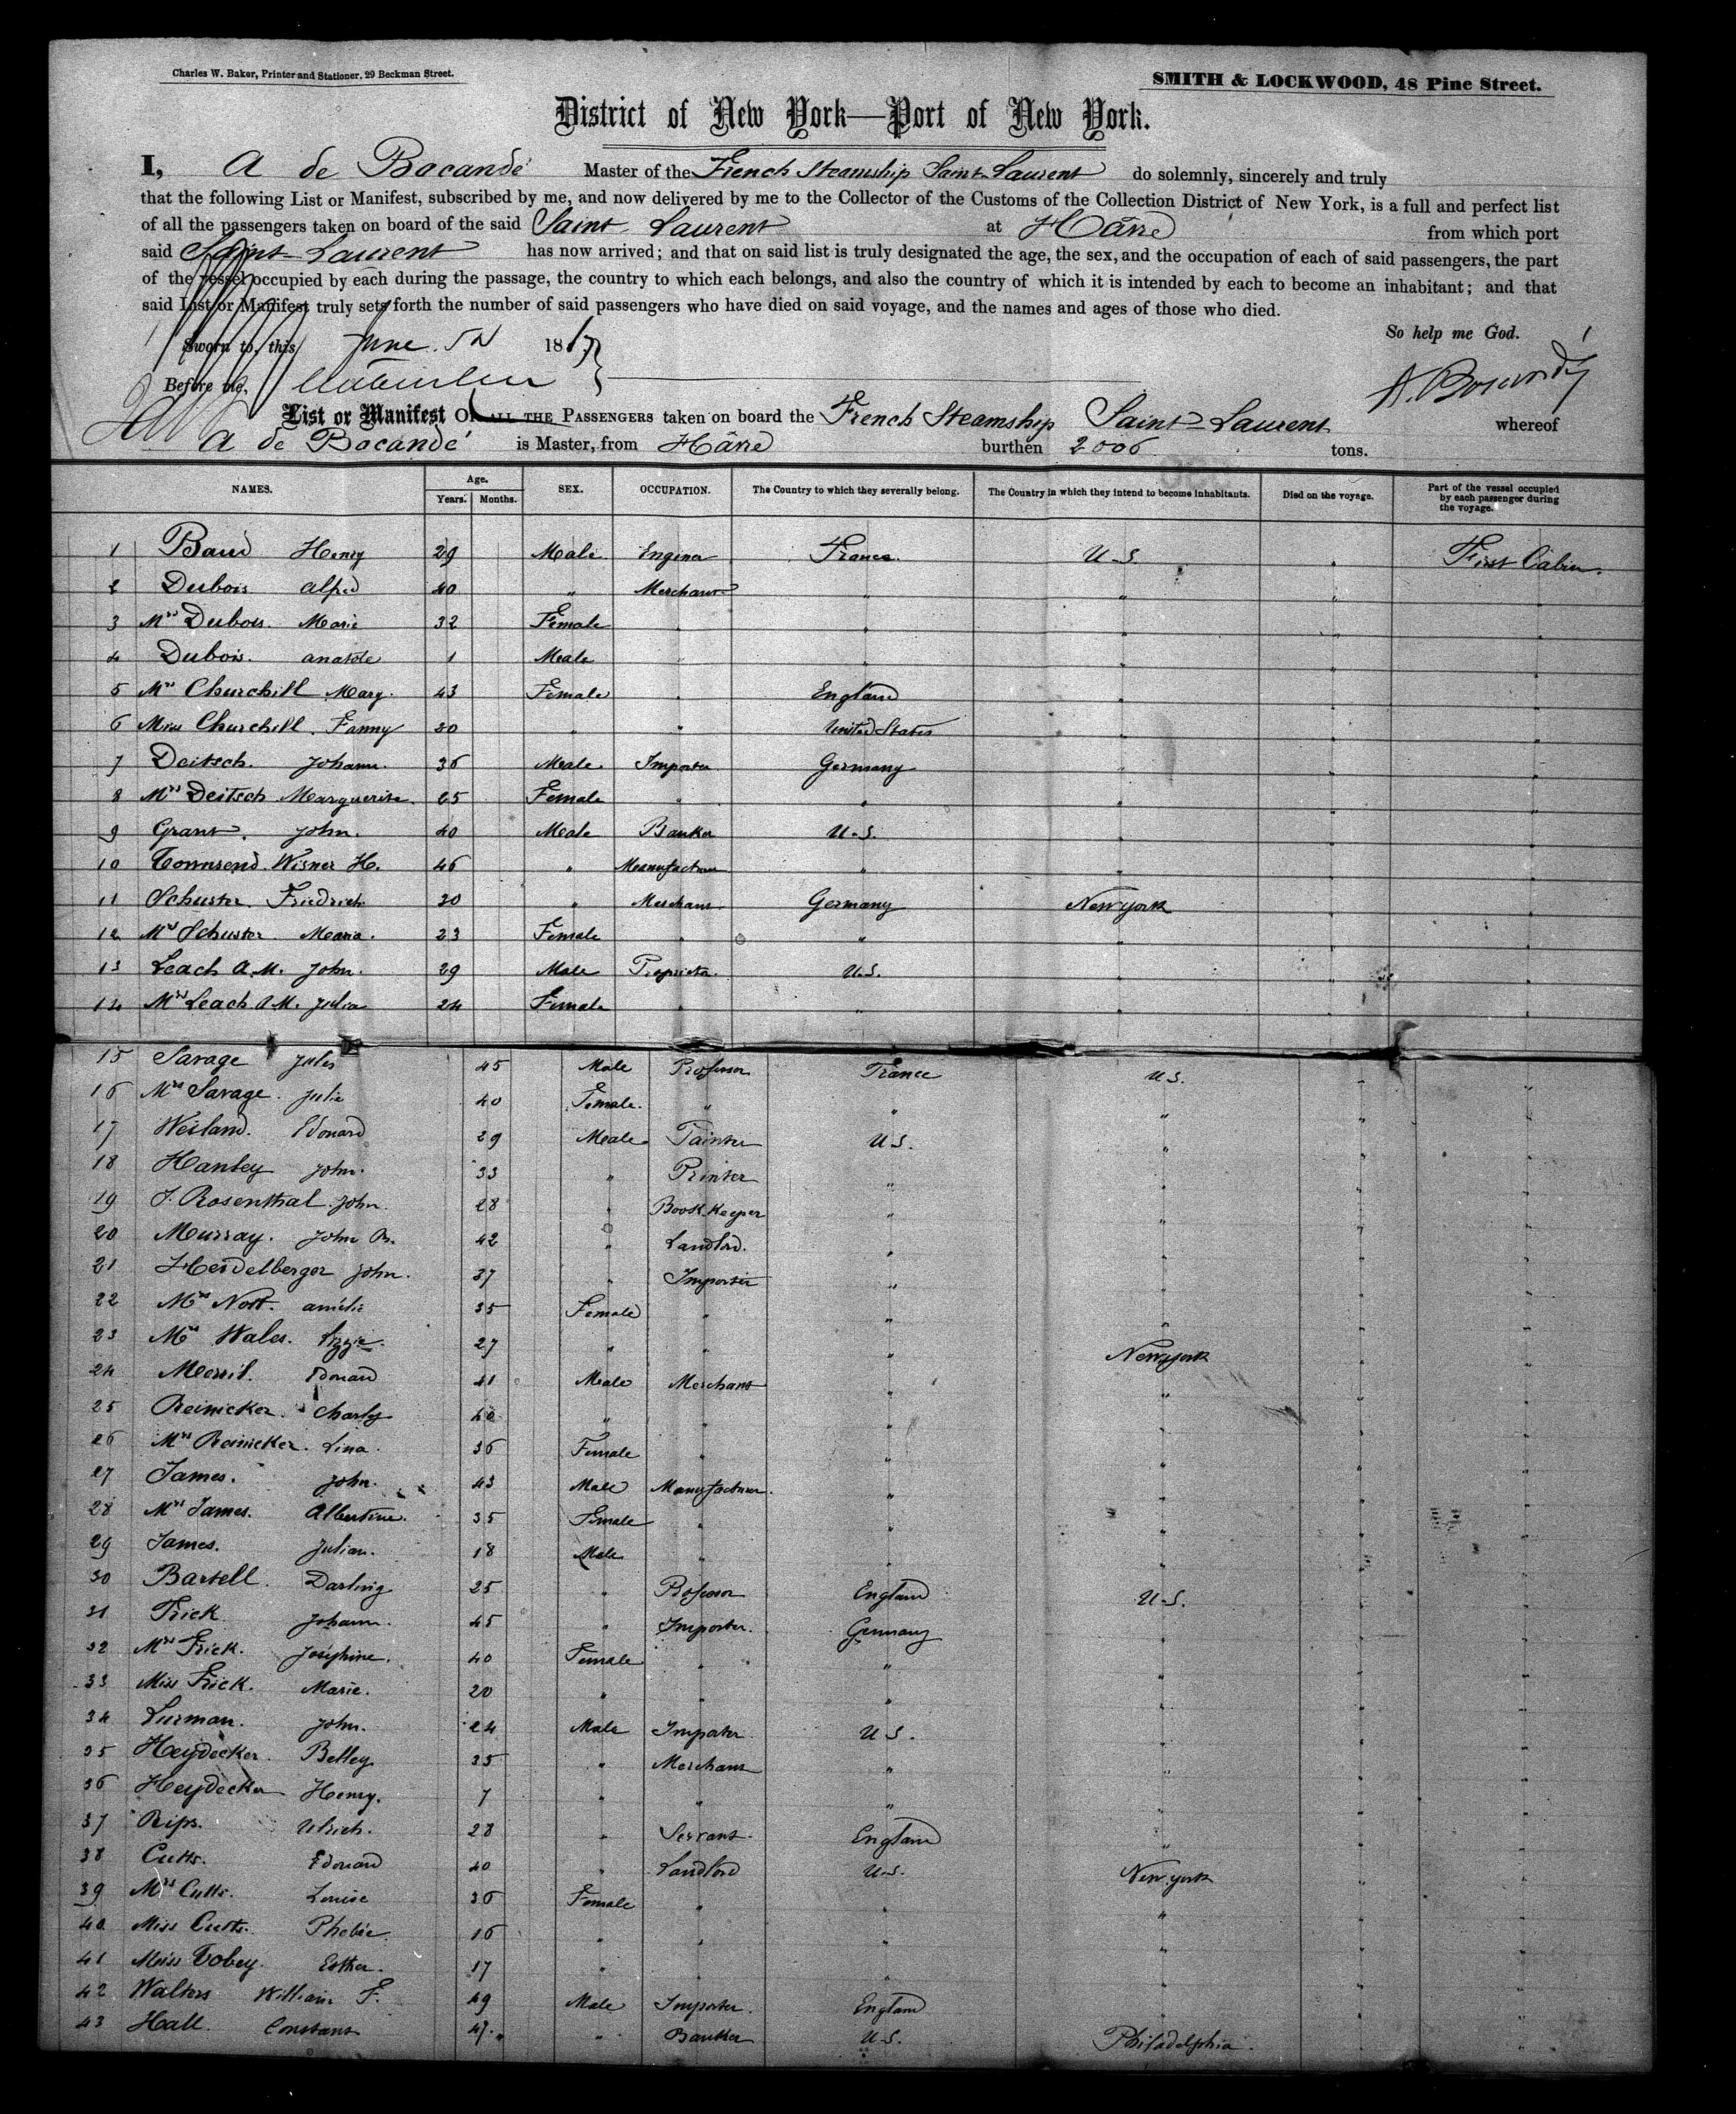 Charles W. Baker, Printer and Stationer, 29 Beekman Street.
SMITH & LOCKWOOD, 48 Pine Street.
District of New York—Port of New York.
I, A de Bocandé Master of the French Steamship Saint-Laurent do solemnly, sincerely and truly
that the following List or Manifest, subscribed by me, and now delivered by me to the Collector of the Customs of the Collection District of New York, is a full and perfect list
of all the passengers taken on board of the said Saint Laurent at Hâvre from which port
said Saint-Laurent has now arrived; and that on said list is truly designated the age, the sex, and the occupation of each of said passengers, the part
of the vessel occupied by each during the passage, the country to which each belongs, and also the country of which it is intended by each to become an inhabitant; and that
said List or Manifest truly sets forth the number of said passengers who have died on said voyage, and the names and ages of those who died.
So help me God.
Sworn to, this June 187
Before me,
List or Manifest OF ALL THE PASSENGERS taken on board the French Steamship Saint-Laurent whereof
A de Bocandé is Master, from Hâvre burthen 2006 tons.
NAMES. Age. Years. Months. SEX. OCCUPATION. The Country to which they severally belong. The Country in which they intend to become inhabitants. Died on the voyage. Part of the vessel occupied by each passenger during the voyage.
1 Henry 29 Male Engineer France U-S. " First Cabin.
2 Dubois Alfred 40 " Merchant " " " "
3 Mrs Dubois. Marie 32 Female " " " " "
4 Dubois. anatole 1 Male " " " " "
5 Mrs Churchill Mary. 43 Female " England " " "
6 Miss Churchill. Fanny 20 " " United States " " "
7 Deitsch. Johann. 36 Male. Importer Germany " " "
8 Mrs Deitsch Marguerite. 25 Female " " " " "
9 Grant. John. 40 Male Banker U-S. " " "
10 Townsend. Wisner H. 46 " Manufacturer " " " "
11 Schuster. Friedrich 30 " Merchant Germany New york " "
12 Mrs Schuster Maria. 23 Female " " " " "
13 Leach A.M. John. 29 Male Proprietor. U.S. " " "
14 Mrs Leach A.M. Julia 24 Female " " " " "
15 Savage Jules 45 Male Professor France U.S. " "
16 Mrs Savage. Julie 40 Female. " " " " "
17 Weiland. Edouard 29 Male Painter U S. " " "
18 Hanbey John. 33 " Printer " " " "
19 J. Rosenthal John. 28 " Book Keeper " " " "
20 Murray. John B. 42 " Landlord. " " " "
21 Heidelberger John. 37 " Importer " " " "
22 Mrs Nott. amélie 35 Female " " " " "
23 Mrs Wales. Lizzie. 27 " " " New york " "
24 Merril. Edouard 41 Male Merchant " " " "
25 Reinicker. Charly 40 " " " " " "
26 Mrs Reinicker. Lina. 36 Female " " " " "
27 James. John. 43 Male Manufacturer. " " " "
28 Mrs James. Albertine. 35 Female " " " " "
29 James. Julian. 18 Male " " " " "
30 Bartell. Darling 25 " Professor England U-S. " "
31 Frick Johann. 45 " Importer. Germany " " "
32 Mrs Frick. Joséphine. 40 Female " " " " "
33 Miss Frick. Marie. 20 " " " " " "
34 Lurman. John. 24 Male Importer U S. " " "
35 Heydecker. Belley 35 " Merchant " " " "
36 Heydecker Henry. 7 " " " " " "
37 Rips. Ulrich. 28 " Servant. England " " "
38 Cutts. Edouard 40 " Landlord U-S. New york " "
39 Mrs Cutts. Louise 36 Female " " " " "
40 Miss Cutts. Phebée 16 " " " " " "
41 Miss Tobey. Esther. 17 " " " " " "
42 Walters William F. 49 Male Importer. England " " "
43 Hall. Constant 47. " Banker U-S. Philadelphia. " "